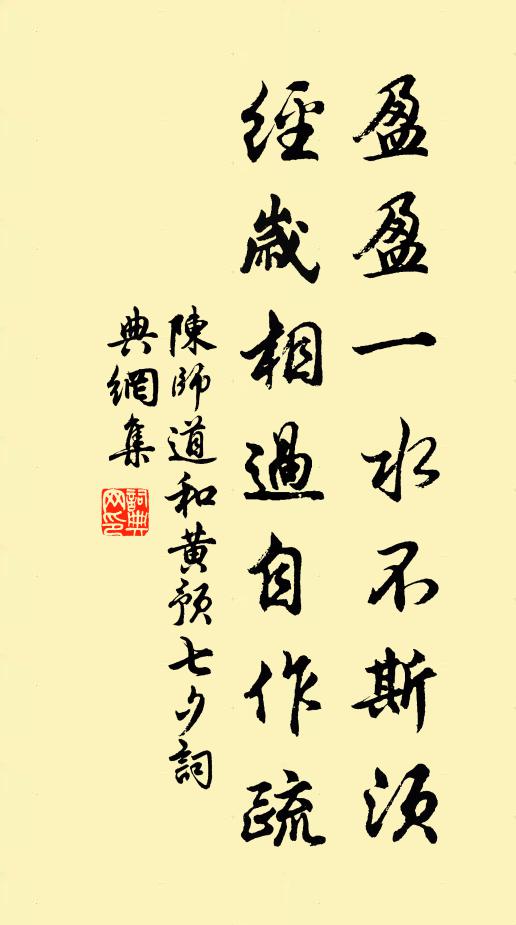 盈盈一水不斯須
經歲相過自作疏
陳師道和黃預七夕詞
典網集
詞典網印